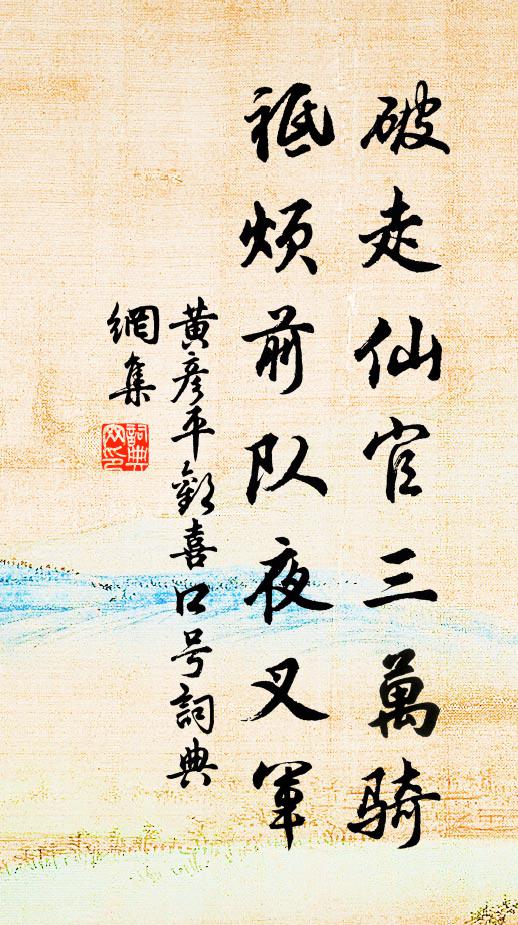 破走仙官三萬骑
祗烦前队夜叉军
黄彦平歡喜口号詞典
網集
詞典